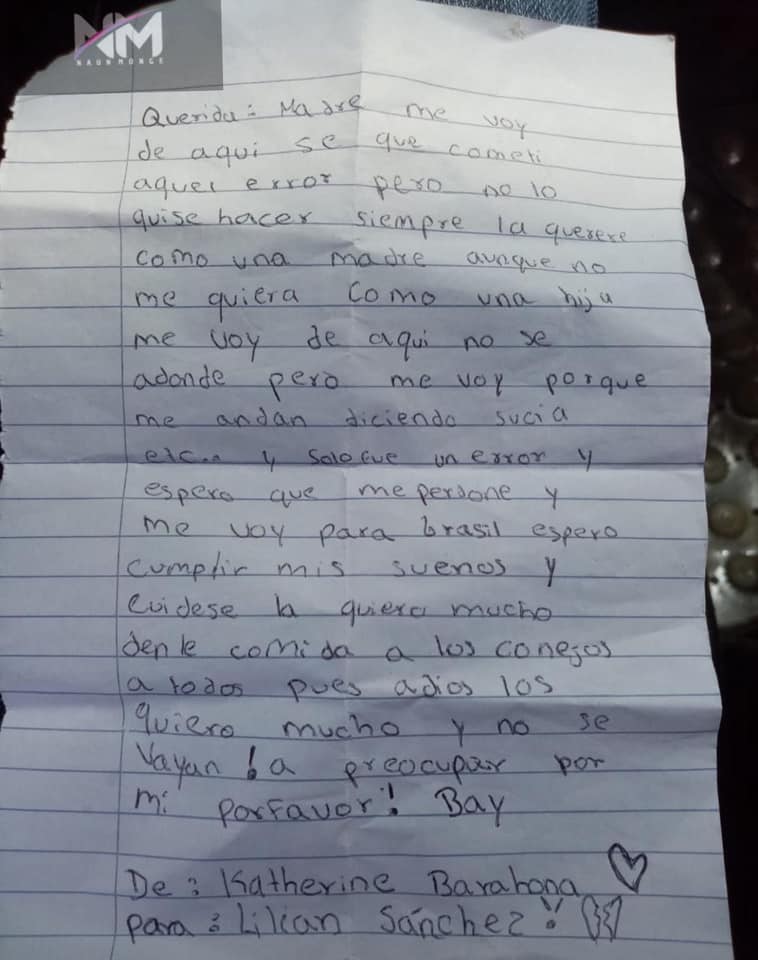 NM
NAUN MONGE
Querida: Madre me voy
de aqui se que cometi
aquel error pero no lo
quise hacer siempre la querere
como una madre aunque no
me quiera como una hija
me voy de aqui no se
adonde pero me voy porque
me andan diciendo sucia
etc.. y solo fue un error y
espero que me perdone y
me voy para brasil espero
cumplir mis suenos y
Cuidese la quiero mucho
denle comida a los conejos
a todos pues adios los
quiero mucho y no se
Vayan ! a preocupar por
mi porfavor! Bay
De : Katherine Barahona
para : Lilian Sánchez